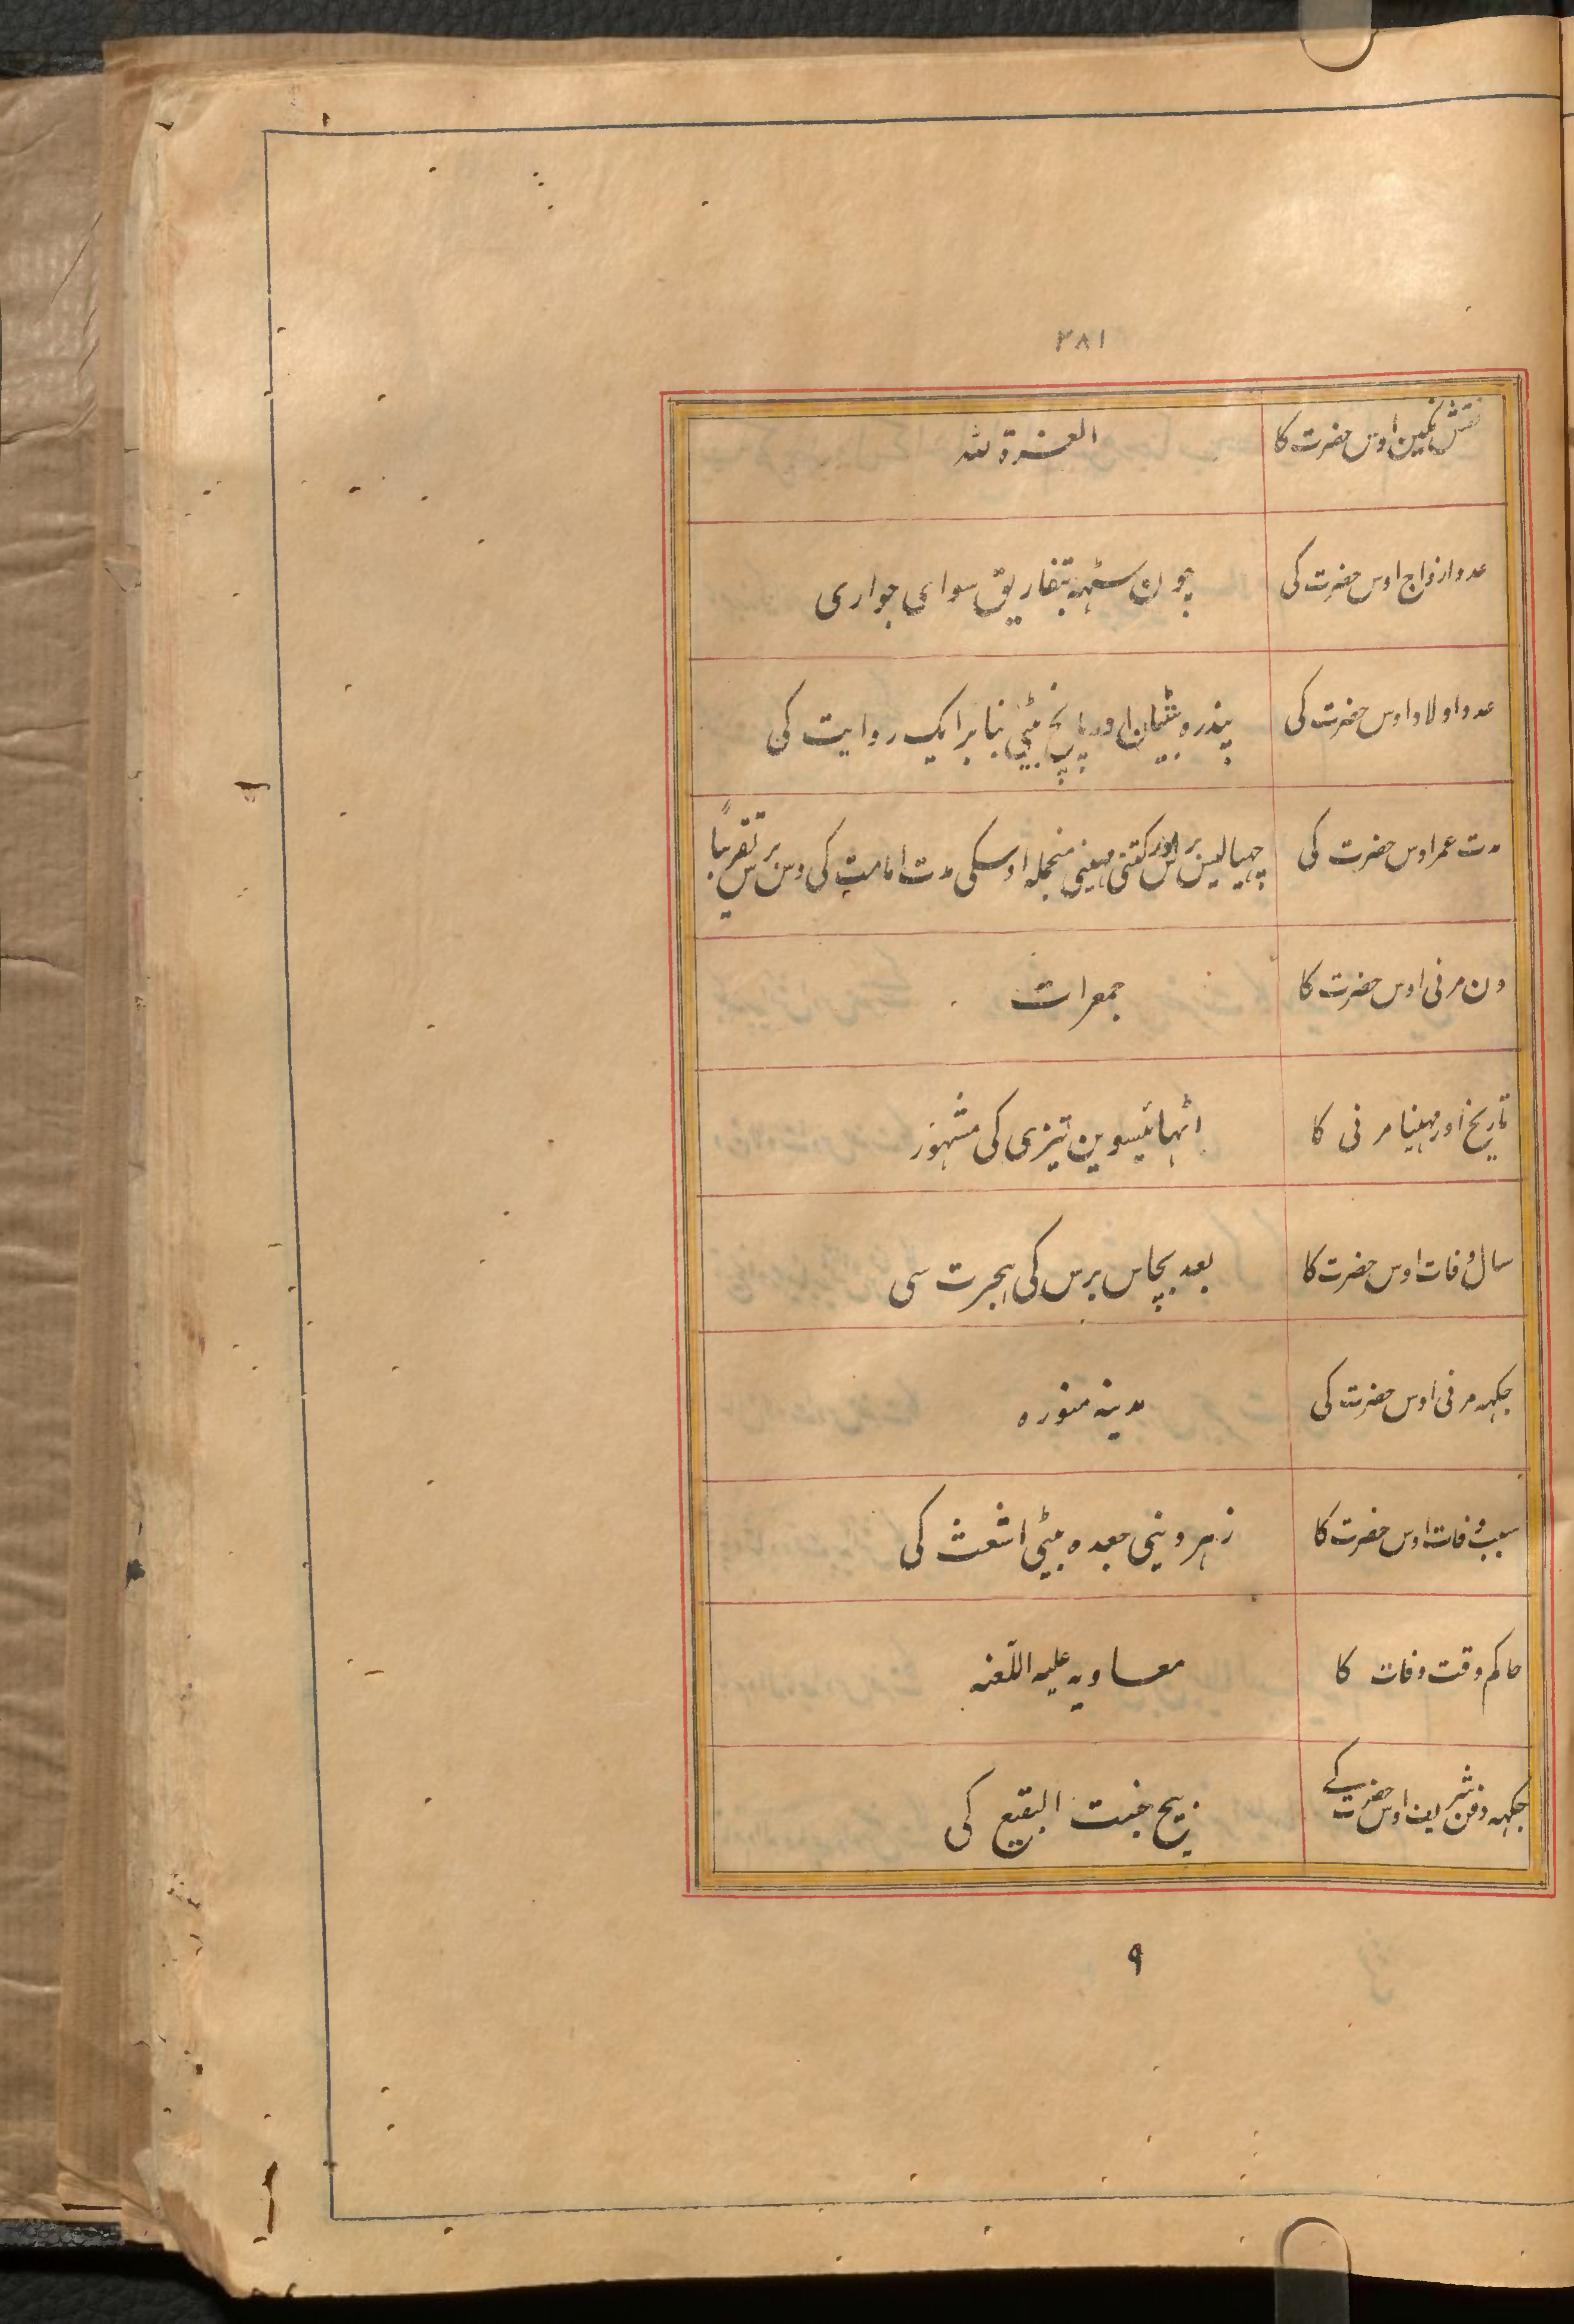 ۲۸۱
نقش نگین اوس حضرت کا العزة لله
عدد ازواج اوس حضرت کی چونسٹهہ بتفاریق سوای جواری
عدد اولاد اوس حضرت کی پندره بیٹیان اور پانچ بیٹی بنا بر ایک روایت کی
مدت عمر اوس حضرت کی چهیالیس برس اور کتنی مهینی منجمله اوسکی مدت امامت کی دس برس تقریبًا
دن مرنی اوس حضرت کا جمعرات
تاریخ اور مهینا مرنی کا اٹهائیسوین تیزی کی مشهور
سال وفات اوس حضرت کا بعد پچاس برس کی هجرت سی
جگهه مرنی اوس حضرت کی مدینه منوره
سبب وفات اوس حضرت کا زهر دینی جعده بیٹی اشعث کی
حاکم وقت وفات کا معاویه علیه اللّعنه
جگهه دفن شریف اوس حضرت کے بیچ جنت البقیع کی
۹